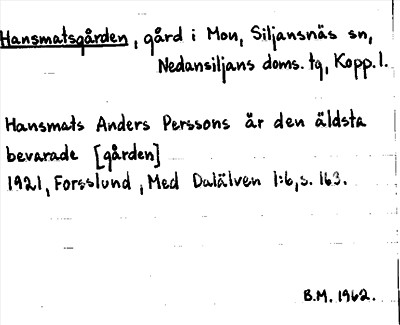 Hansmatsgården, gård i Mon, Siljansnäs sn,
Nedansiljans doms. tg, Kopp. l.
Hansmats Anders Perssons är den äldsta
bevarade [gården]
1921, Forsslund, Med Dalälven 1:6, s. 163.
B.M. 1962.